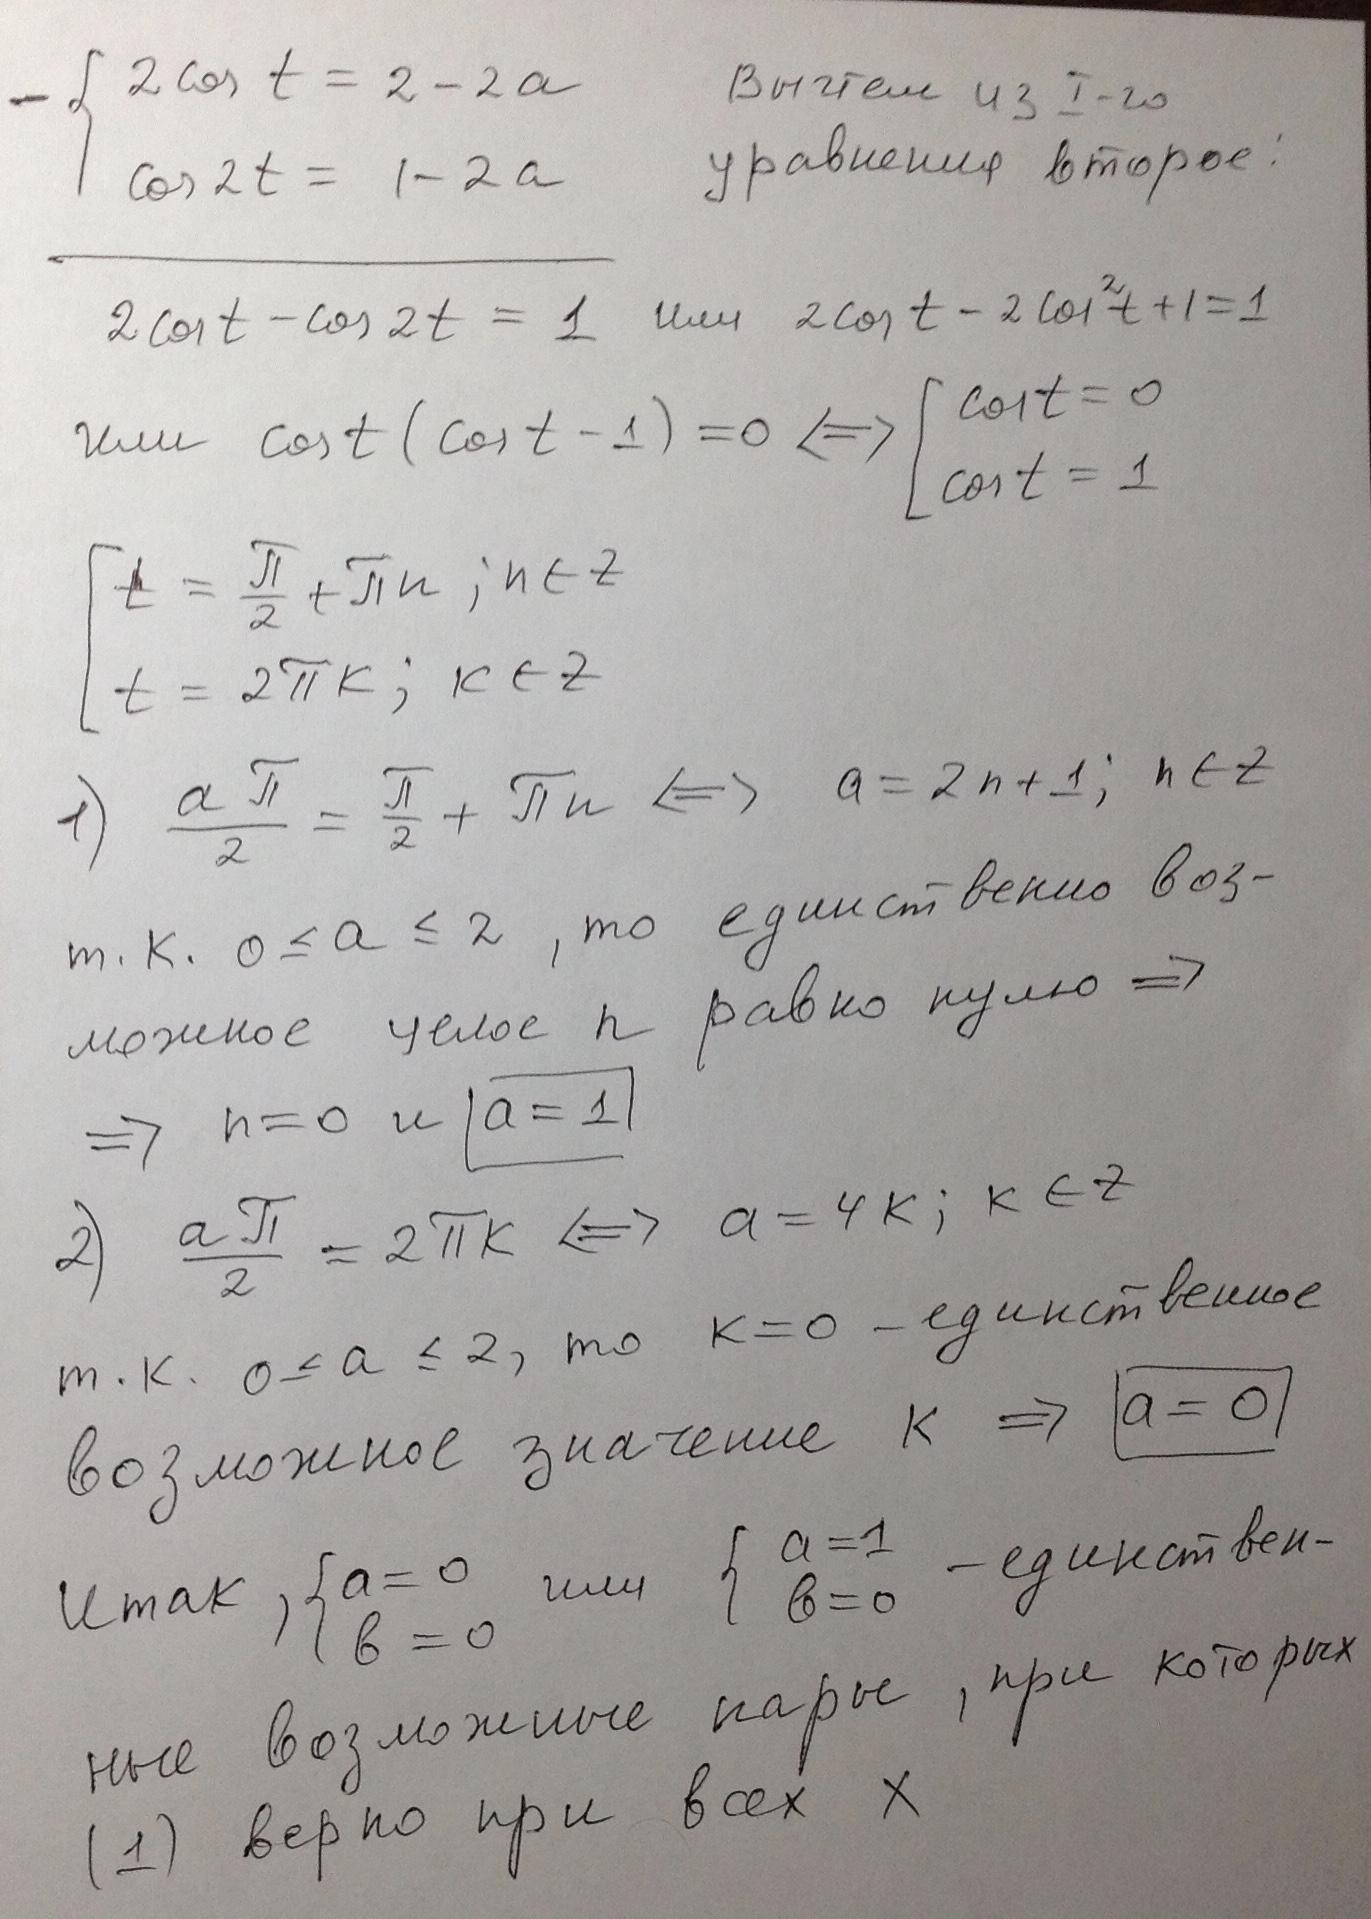 - { 2cos t = 2 - 2a
cos 2t = 1 - 2a
Вычтем из I-го
уравнения второе:
2cos t - cos 2t = 1 или 2cos t - 2cos²t + 1 = 1
или cos t (cos t - 1) = 0 <=> [ cos t = 0
cos t = 1
[ t = π/2 + πn ; n ∈ Z
t = 2πk ; k ∈ Z
1) aπ/2 = π/2 + πn <=> a = 2n + 1; n ∈ Z
т.к. 0 ≤ a ≤ 2, то единственно воз-
можное целое n равно нулю =>
=> n = 0 и a = 1
2) aπ/2 = 2πk <=> a = 4k; k ∈ Z
т.к. 0 ≤ a ≤ 2, то k = 0 - единственное
возможное значение k => a = 0
Итак, { a = 0 или { a = 1 - единствен-
в = 0 в = 0
ные возможные пары, при которых
(1) верно при всех x